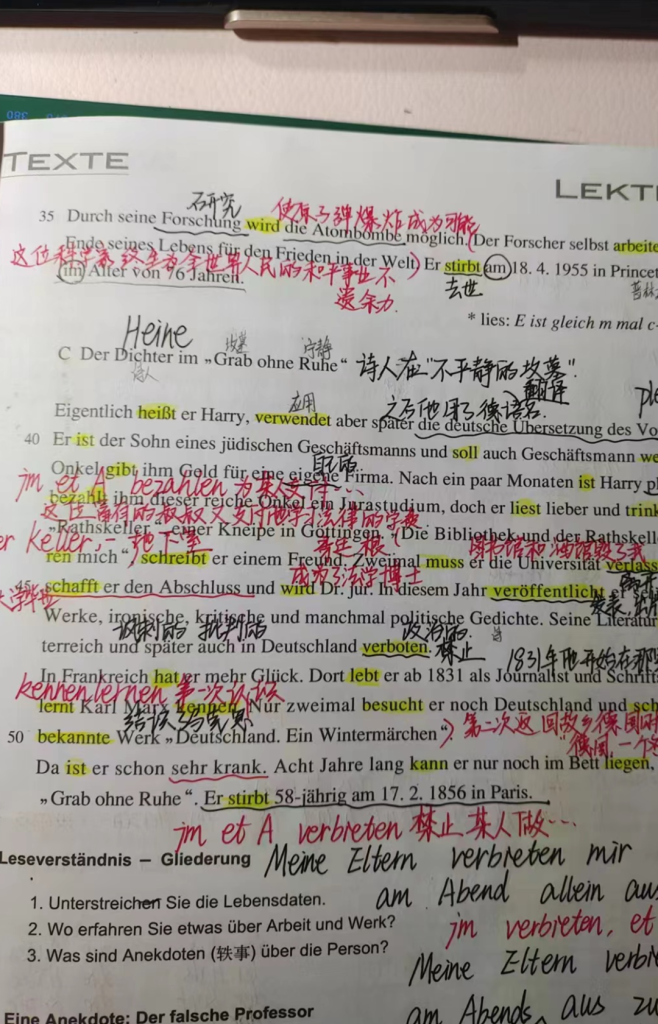 TEXTE
LEKT
石开究
使原子弹爆炸成为可能
35 Durch seine Forschung wird die Atombombe möglich. (Der Forscher selbst arbeite
Ende seines Lebens für den Frieden in der Welt.) Er stirbt am 18. 4. 1955 in Princet
这位科学家终生为全世界人民的和平事业不
(im) Alter von 76 Jahren.
遗余力
去世
* lies: E ist gleich m mal c-
Heine
坟墓 宁静
C Der Dichter im „Grab ohne Ruhe“ 诗人在"不平静的坟墓".
诗人
应用
翻译
Eigentlich heißt er Harry, verwendet aber später die deutsche Übersetzung des Vo
之后他用了德语名.
40 Er ist der Sohn eines jüdischen Geschäftsmanns und soll auch Geschäftsmann we
Onkel gibt ihm Geld für eine eigene Firma. Nach ein paar Monaten ist Harry pl
jm et A bezahlen 为某人支付...
bezahlt ihm dieser reiche Onkel ein Jurastudium, doch er liest lieber und trink
这位富有的叔叔又支付他学习法律的学费
„Rathskeller“, einer Kneipe in Göttingen. (Die Bibliothek und der Rathskelle
er Keller, - 地下室
图书馆和酒馆毁了我
ren mich“) schreibt er einem Freund. Zweimal muss er die Universität verlass
成为了法学博士
45 schafft er den Abschluss und wird Dr. jur. In diesem Jahr veröffentlicht er
大学毕业
Werke, ironische, kritische und manchmal politische Gedichte. Seine Literatur
讽刺的 批判的 政治的
terreich und später auch in Deutschland verboten. 禁止
1831年他开始在那
In Frankreich hat er mehr Glück. Dort lebt er ab 1831 als Journalist und Schrift
kennenlernen 第一次认识
lernt Karl Marx kennen. Nur zweimal besucht er noch Deutschland und sch
结识了马克思
50 bekannte Werk „Deutschland. Ein Wintermärchen“) 第二次返回故乡德国时
"德国,一个
Da ist er schon sehr krank. Acht Jahre lang kann er nur noch im Bett liegen,
„Grab ohne Ruhe“. Er stirbt 58-jährig am 17. 2. 1856 in Paris.
jm et A verbieten 禁止某人做...
Leseverständnis – Gliederung
Meine Eltern verbieten mir
1. Unterstreichen Sie die Lebensdaten.
am Abend allein aus
2. Wo erfahren Sie etwas über Arbeit und Werk?
jm verbieten, et
3. Was sind Anekdoten (轶事) über die Person?
Meine Eltern verbie
Eine Anekdote: Der falsche Professor
am Abends aus zu